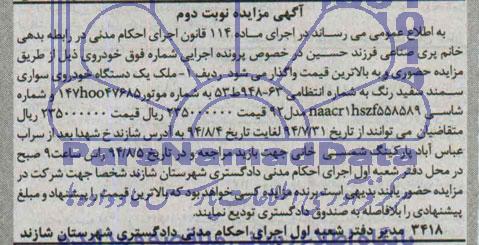 آگهی مزایده نوبت دوم
به اطلاع عمومی می رساند در اجرای ماده ۱۱۴ قانون اجرای احکام مدنی در رابطه بدهی
خانم پری صنافی فرزند حسین در خصوص پرونده اجرایی شماره فوق خودروی ذیل از طریق
مزایده حضوری و به بالاترین قیمت واگذار می شود. ردیف ۱- ملک یک دستگاه خودروی سواری
سمند سفید رنگ به شماره انتظامی ۶۳-۹۴۸ط۵۳ به شماره موتور ۱۴۷h۰۰۴۷۶۸۵ و شماره
شاسی naacr۱hszf۵۵۸۵۸۹ مدل ۹۲ قیمت ۲۳۵۰۰۰۰۰۰ ریال قیمت ۲۳۵۰۰۰۰۰۰ ریال
متقاضیان می توانند از تاریخ ۹۴/۷/۳۱ لغایت تاریخ ۹۴/۸/۴ به آدرس شازند خ شهدا بعد از سراب
عباس آباد پارکینگ شمسی خانی جهت بازید مراجعه و در تاریخ ۹۴/۸/۵ راس ساعت ۹ صبح
در محل دفتر شعبه اول اجرای احکام مدنی دادگستری شهرستان شازند شخصا جهت شرکت در
مزایده حضور یابند بدیهی است برنده مزایده کسی خواهد بود که بالاترین قیمت را پیشنهاد و مبلغ
پیشنهادی را بلافاصله به صندوق دادگستری تودیع نمایند.
۳۴۱۸ مدیر دفتر شعبه اول اجرای احکام مدنی دادگستری شهرستان شازند